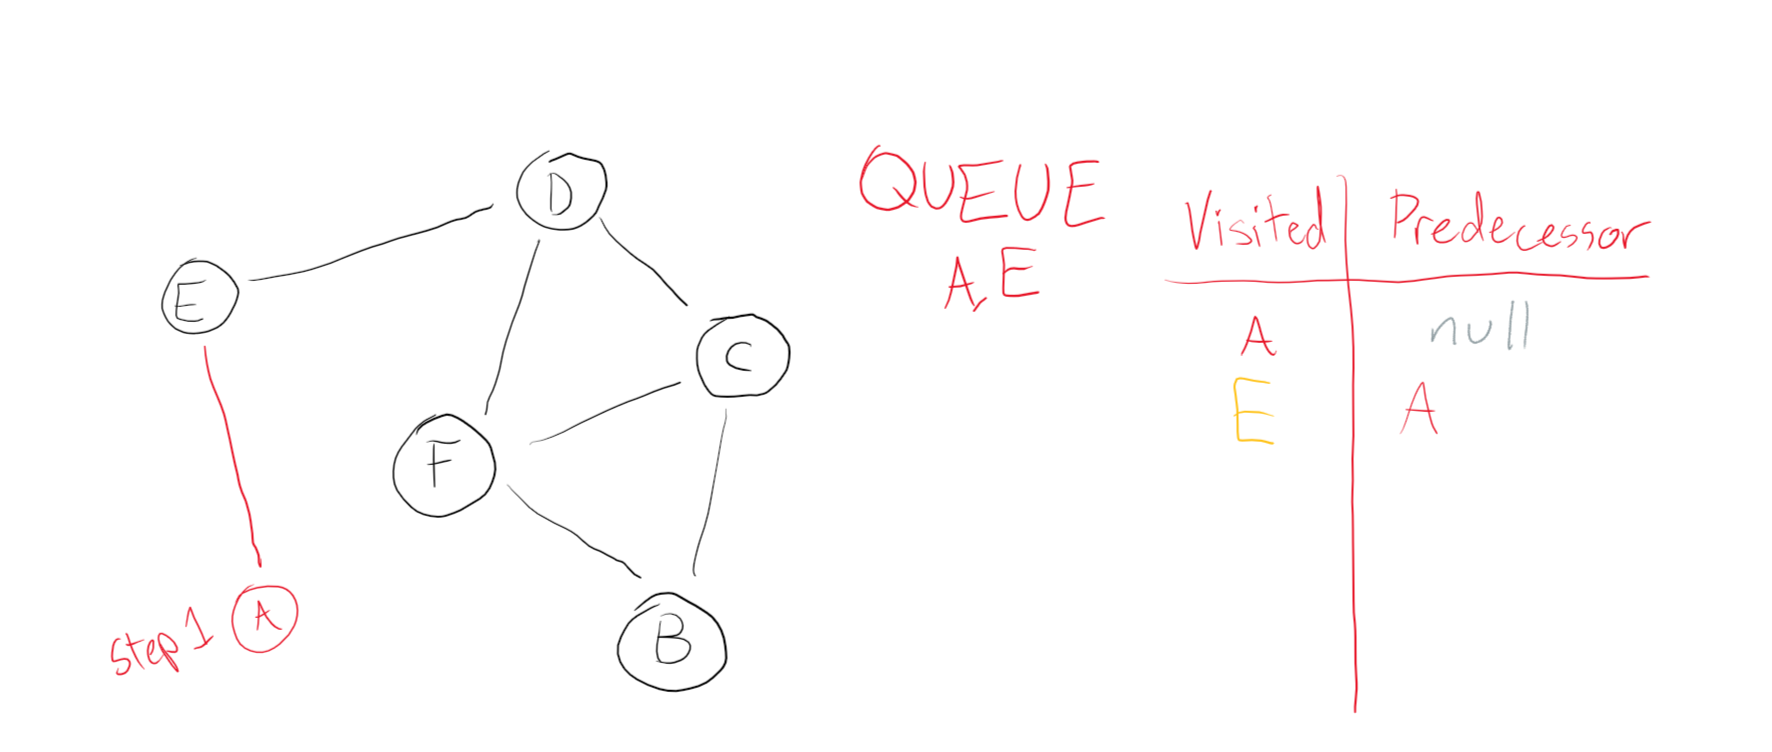 D
E
C
F
B
step 1 A
QUEUE
A, E
Visited Predecessor
A null
E A